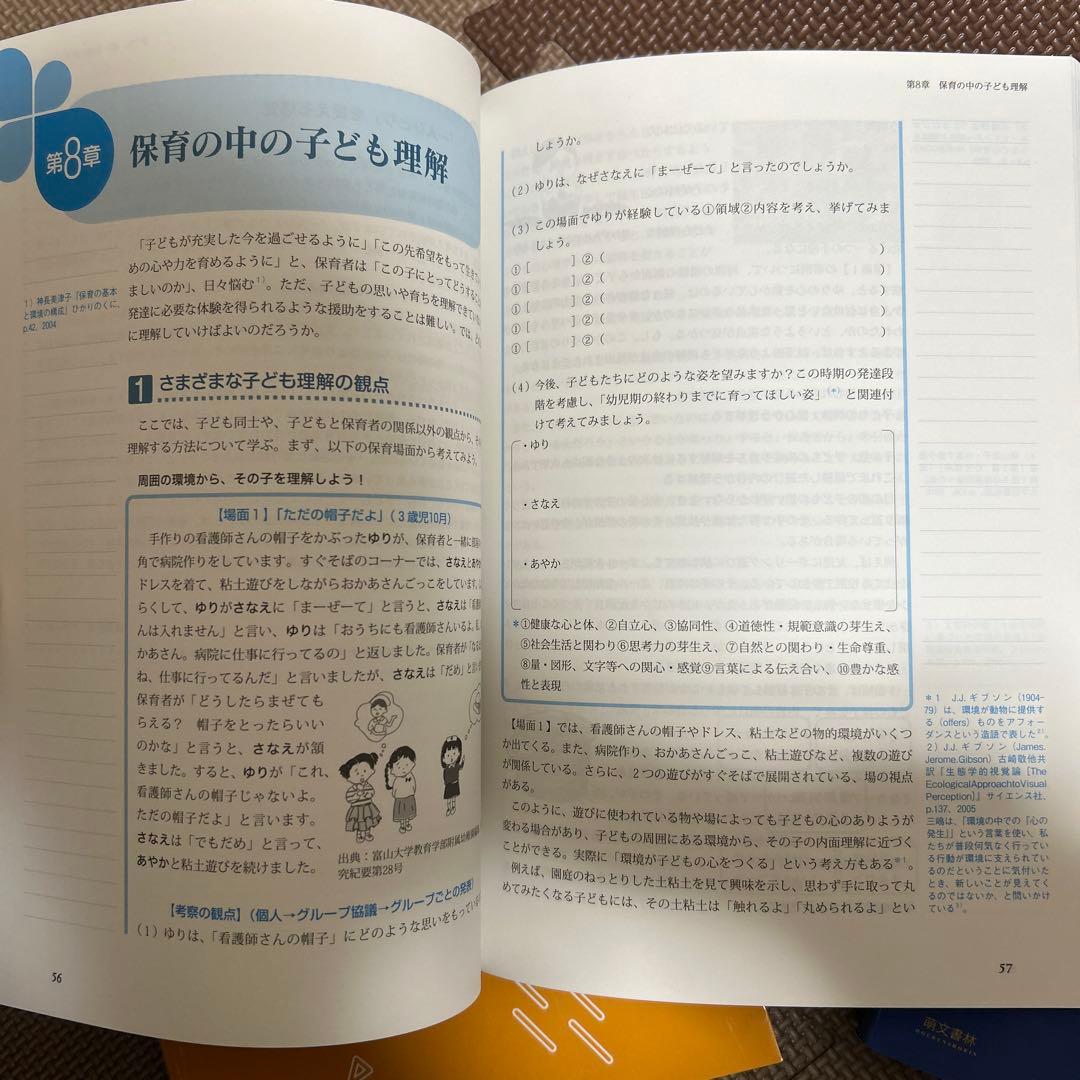 第8章
保育の中の子ども理解
「子どもが充実した今を過ごせるように」「この先希望をもって生き
めの心や力を育めるように」と、保育者は「この子にとってどうするこ
ましいのか」、日々悩む1)。ただ、子どもの思いや育ちを理解できてい
発達に必要な体験を得られるような援助をすることは難しい。では、ど
に理解していけばよいのだろうか。
1）神長美津子『保育の基本
と環境の構成』ひかりのくに、
p.42，2004
1 さまざまな子ども理解の観点
ここでは、子ども同士や、子どもと保育者の関係以外の観点から、そ
理解する方法について学ぶ。まず、以下の保育場面から考えてみよう。
周囲の環境から、その子を理解しよう！
【場面1】「ただの帽子だよ」（3歳児10月）
手作りの看護師さんの帽子をかぶったゆりが、保育者と一緒に
角で病院作りをしています。すぐそばのコーナーでは、さなえとあや
ドレスを着て、粘土遊びをしながらおかあさんごっこをしています。
らくして、ゆりがさなえに「まーぜーて」と言うと、さなえは「看護
んは入れません」と言い、ゆりは「おうちにも看護師さんいるよ。
かあさん。病院に仕事に行ってるの」と返しました。保育者が「
ね、仕事に行ってるんだ」と言いましたが、さなえは「だめ」と言
保育者が「どうしたらまぜても
らえる？　帽子をとったらいい
のかな」と言うと、さなえが頷
きました。すると、ゆりが「これ、
看護師さんの帽子じゃないよ。
ただの帽子だよ」と言います。
さなえは「でもだめ」と言って、
あやかと粘土遊びを続けました。
出典：富山大学教育学部附属幼稚園
究紀要第28号
【考察の観点】（個人→グループ協議→グループごとの発表）
（1）ゆりは、「看護師さんの帽子」にどのような思いをもっている
56
第8章　保育の中の子ども理解
しょうか。
（2）ゆりは、なぜさなえに「まーぜーて」と言ったのでしょうか。
（3）この場面でゆりが経験している①領域②内容を考え、挙げてみま
しょう。
①［　　］②（　　）
①［　　］②（　　）
①［　　］②（　　）
①［　　］②（　　）
①［　　］②（　　）
（4）今後、子どもたちにどのような姿を望みますか？この時期の発達段
階を考慮し、「幼児期の終わりまでに育ってほしい姿」(*) と関連付
けて考えてみましょう。
・ゆり
・さなえ
・あやか
*①健康な心と体、②自立心、③協同性、④道徳性・規範意識の芽生え、
⑤社会生活と関わり⑥思考力の芽生え、⑦自然との関わり・生命尊重、
⑧量・図形、文字等への関心・感覚⑨言葉による伝え合い、⑩豊かな感
性と表現
【場面1】では、看護師さんの帽子やドレス、粘土などの物的環境がいくつ
か出てくる。また、病院作り、おかあさんごっこ、粘土遊びなど、複数の遊び
が関係している。さらに、2つの遊びがすぐそばで展開されている、場の視点
がある。
このように、遊びに使われている物や場によっても子どもの心のありようが
変わる場合があり、子どもの周囲にある環境から、その子の内面理解に近づく
ことができる。実際に「環境が子どもの心をつくる」という考え方もある*1。
例えば、園庭のねっとりした土粘土を見て興味を示し、思わず手に取って丸
めてみたくなる子どもには、その土粘土は「触れるよ」「丸められるよ」とい
*1　J.J.ギブソン（1904-
79）は、環境が動物に提供す
る（offers）ものをアフォー
ダンスという造語で表した2)。
2）J.J.ギブソン（James.
Jerome.Gibson）古崎敬他共
訳『生態学的視覚論［The
EcologicalApproachtoVisual
Perception］』サイエンス社、
p.137，2005
三嶋は、「環境の中での『心の
発生』」という言葉を使い、私
たちが普段何気なく行ってい
る行動が環境に支えられてい
るのだということに気付いた
とき、新しいことが見えてく
るのではないか、と問いかけ
ている3)。
57
萌文書林
HOUBUNSHORIN